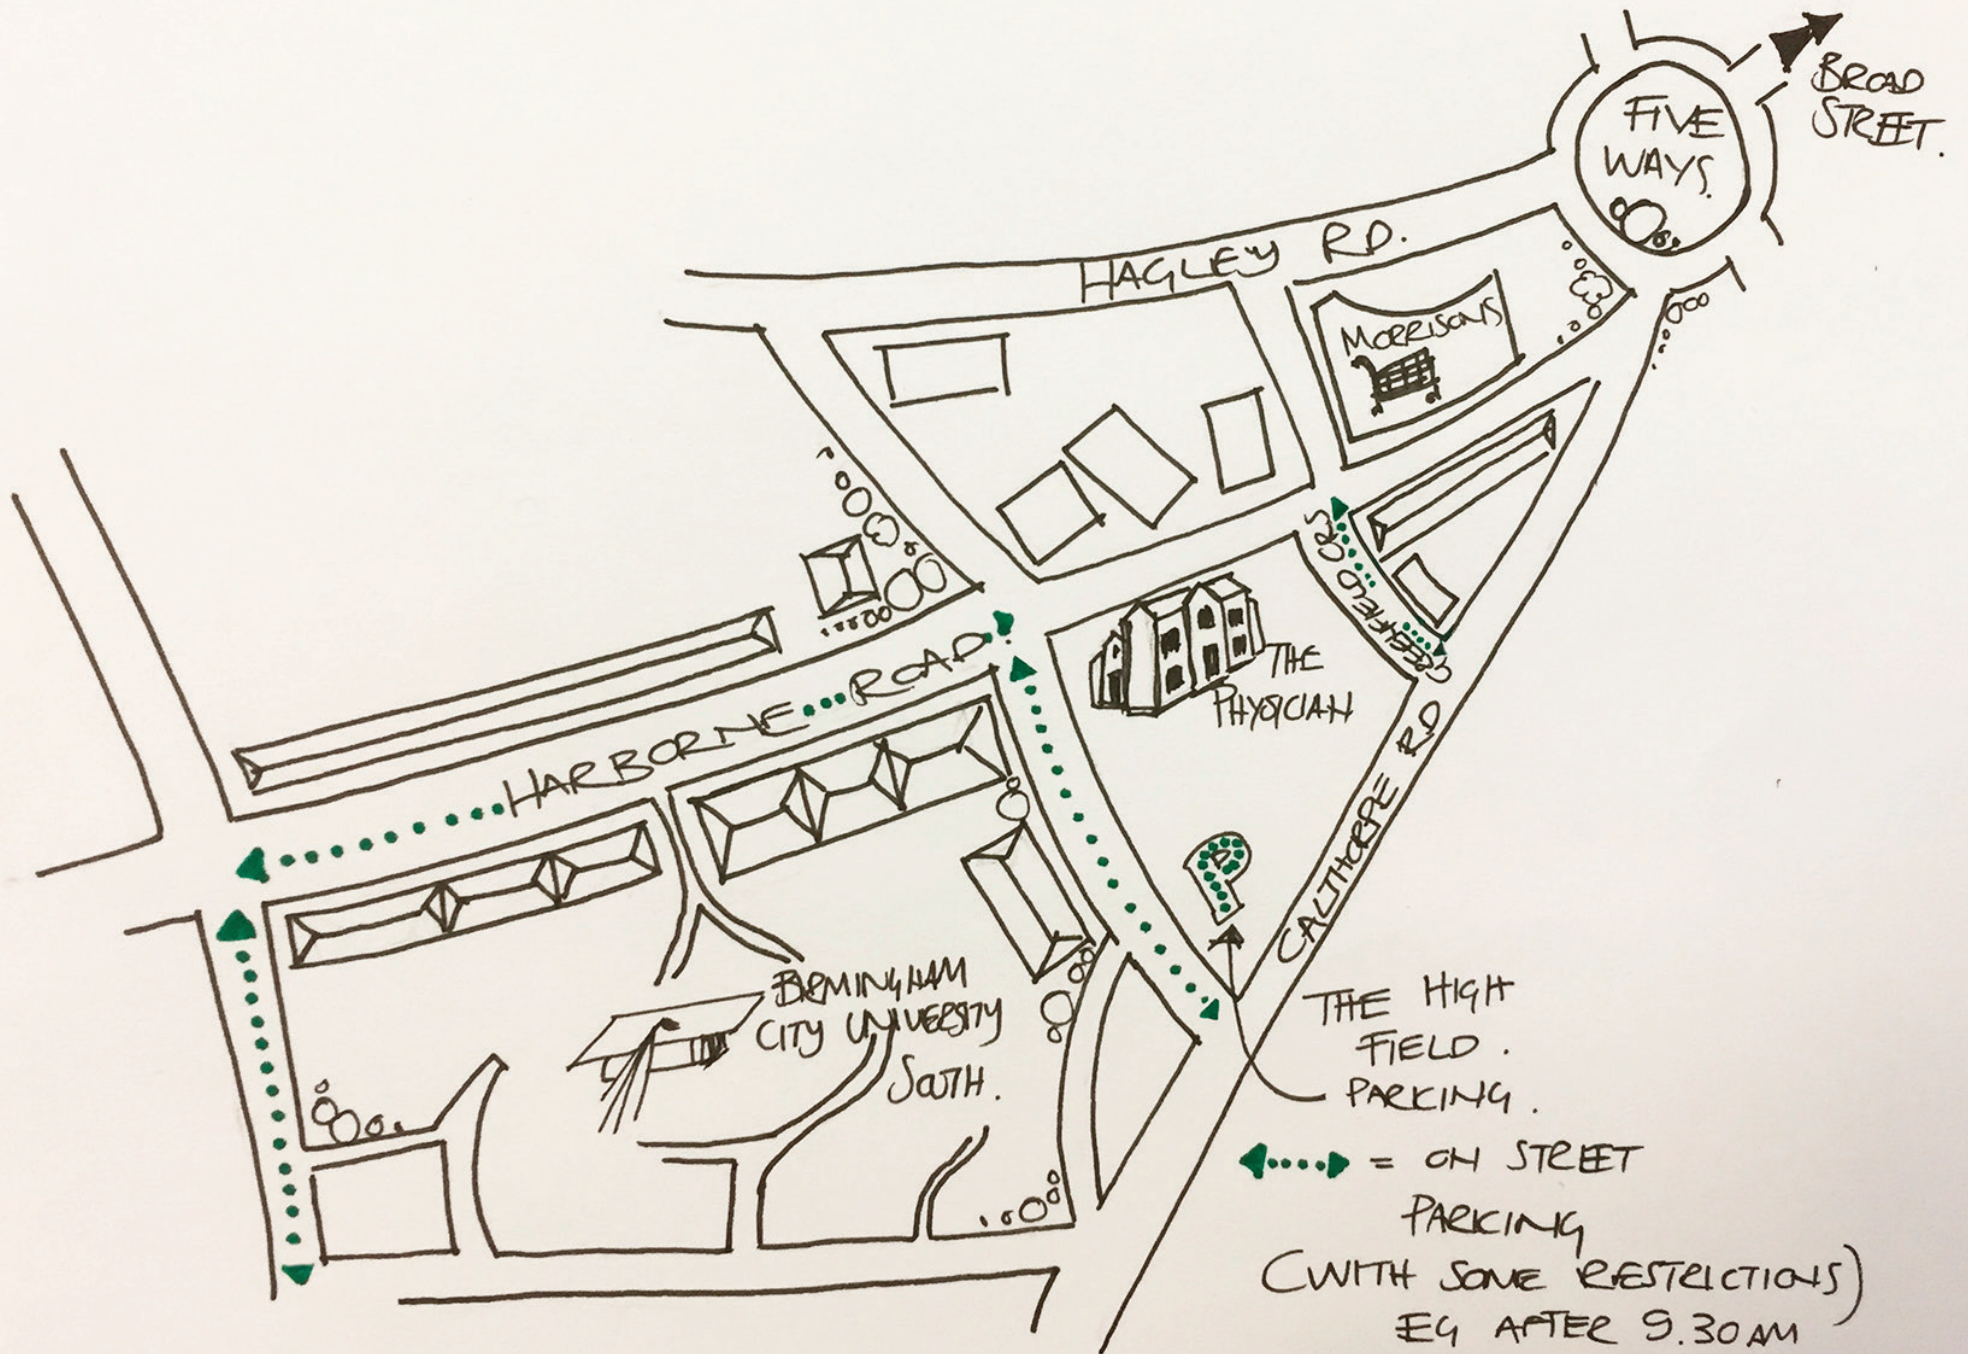 BROAD
STREET.
FIVE
WAYS.
HAGLEY RD.
MORRISONS
GREENFIELD CRS
THE
PHYSICIAN
HARBORNE ROAD
CALTHORPE RD
P
BIRMINGHAM
CITY UNIVERSITY
SOUTH.
THE HIGH
FIELD.
PARKING.
= ON STREET
PARKING
(WITH SOME RESTRICTIONS)
EG AFTER 9.30AM